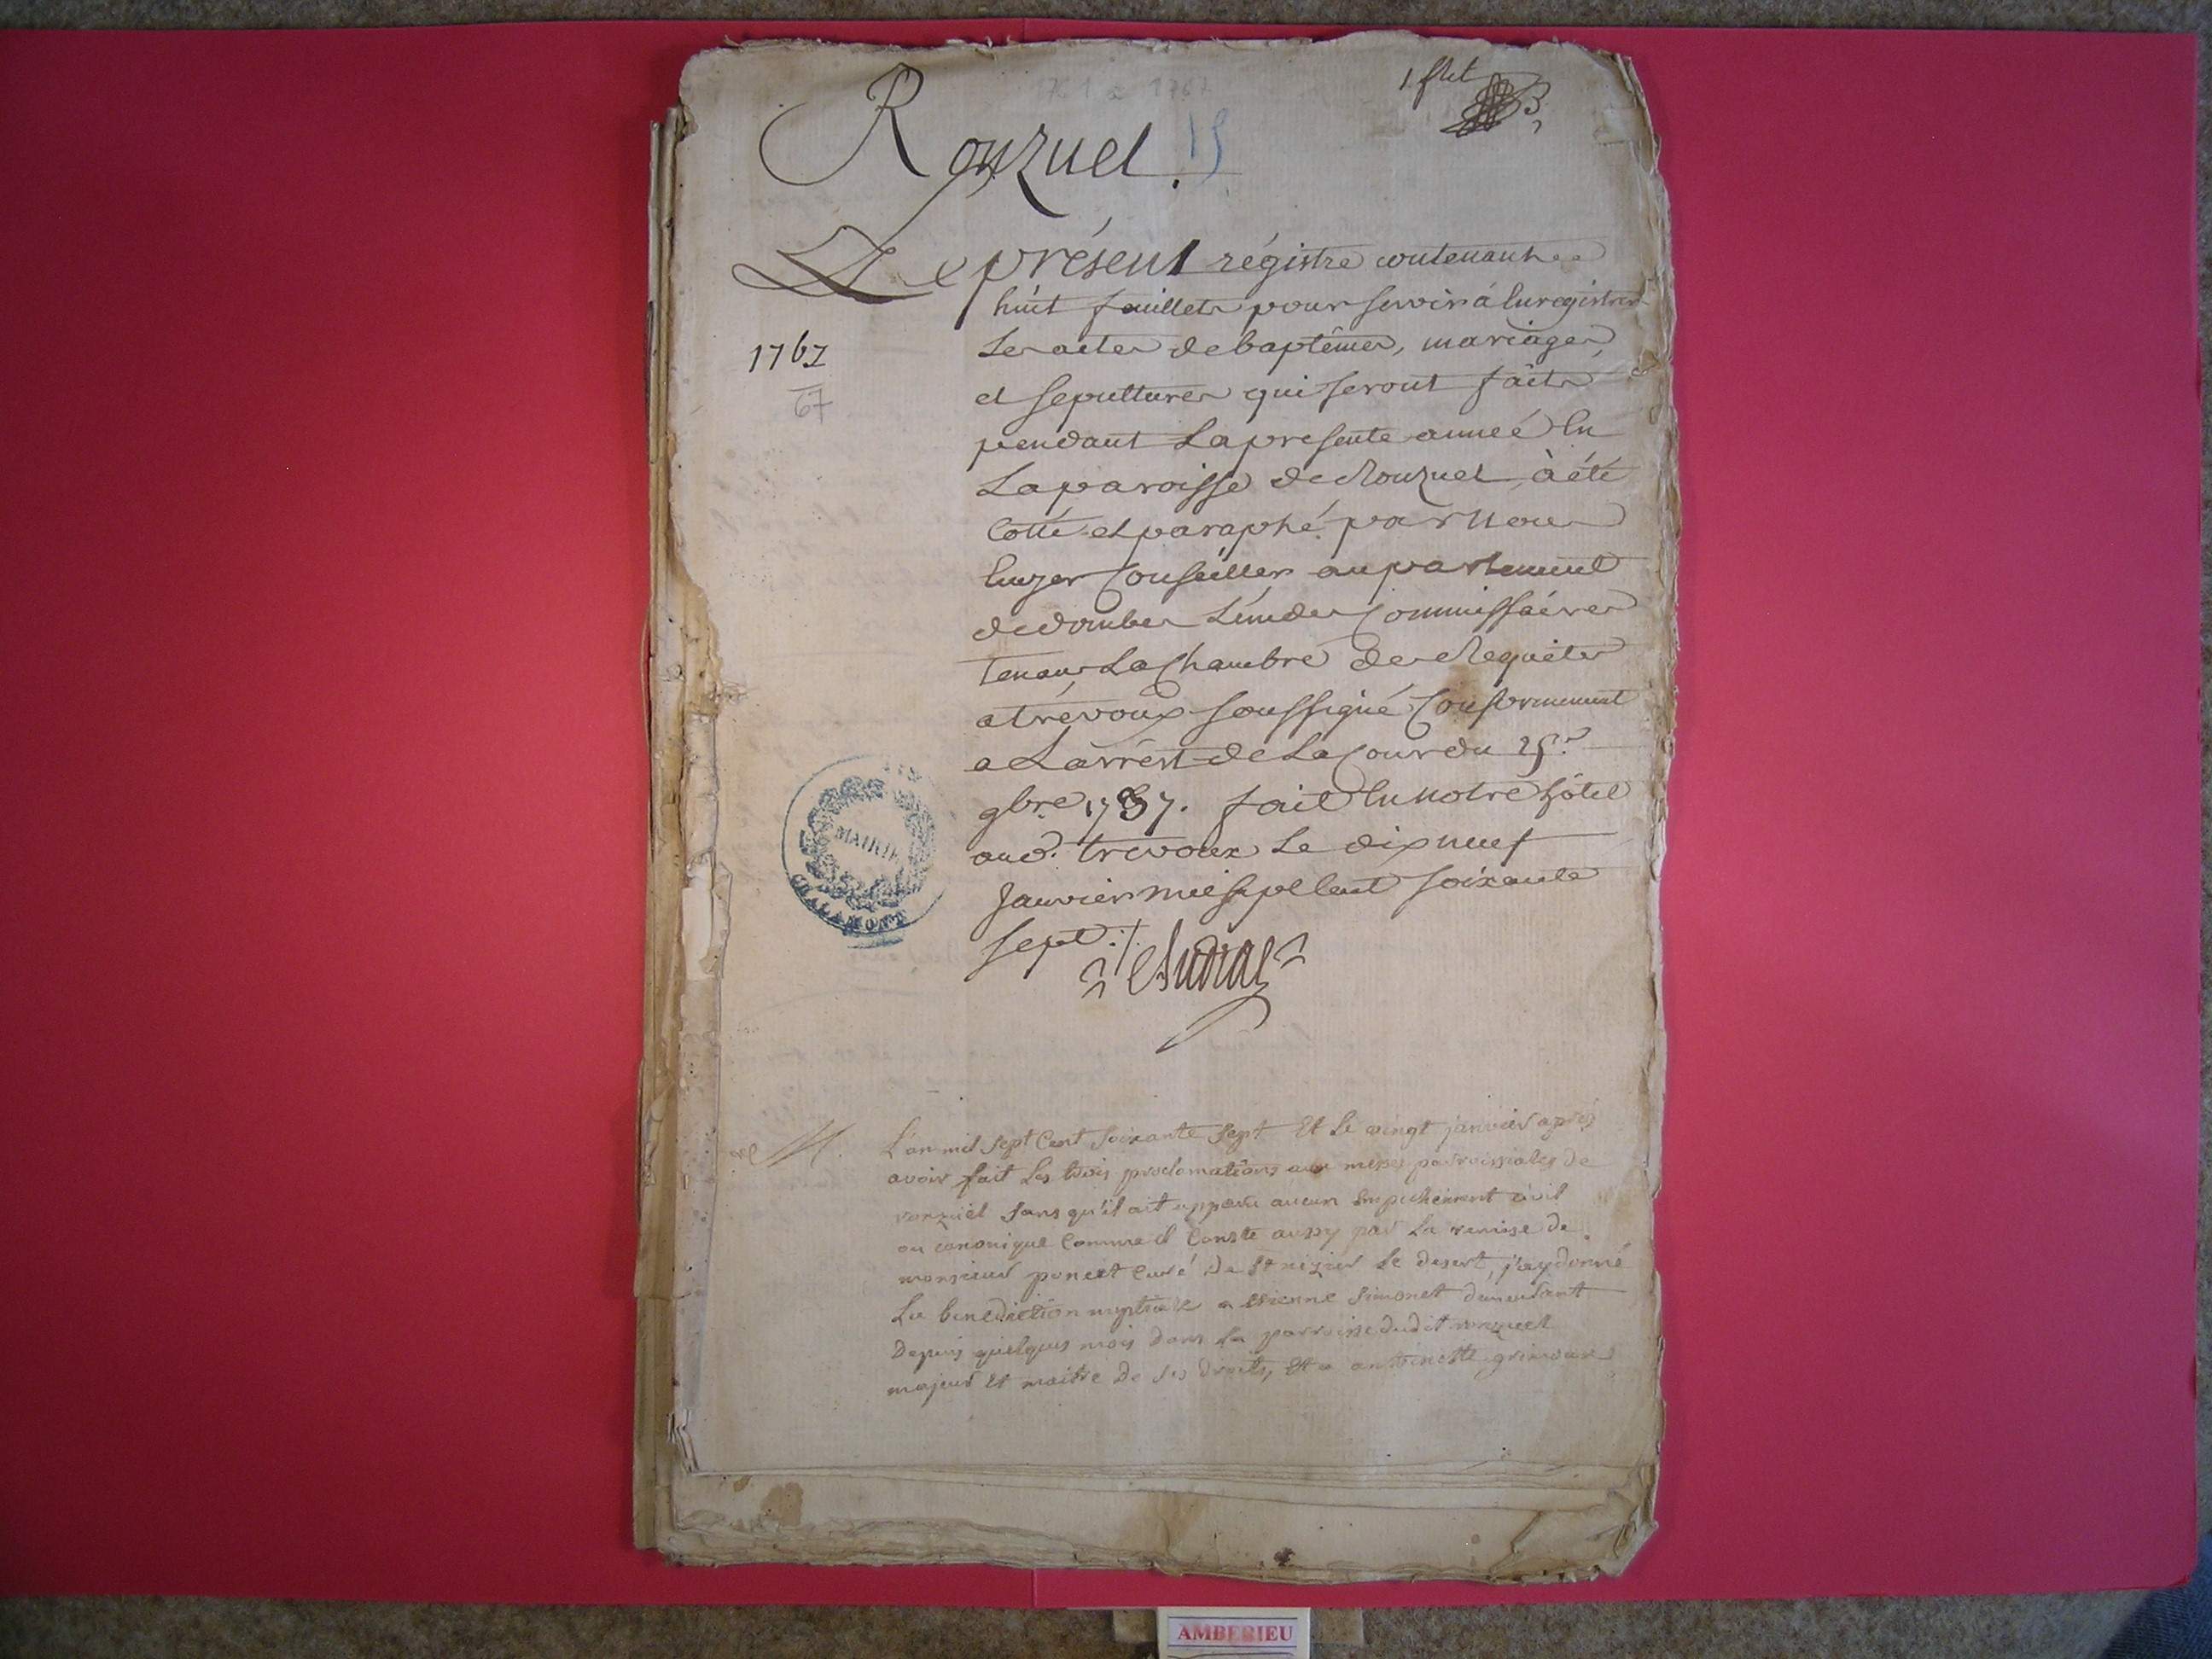 1 flet
1761 a 1767
Ronzuel. 15
Le présent régistre contenant
huit feuillets pour servir à Enregistrer
1767
Les actes de baptêmes, mariages,
67
et sepultures qui seront faits
pendant La presente année En
La paroisse de Ronzuel, à été
Cotté et paraphé par Nous
Conseiller au parlement
de dombes L'un des Commissaires
tenant La Chambre des Requêtes
a trévoux soussigné Conformement
a L'arrêt de La Cour du 25.e
9bre 1757. fait En notre hôtel
aud. trevoux Le dix neuf
Janvier mil sept Cent soixante
sept ./.
MAIRIE
CHALAMONT
M.
L'an mil sept Cent soixante sept Et le vingt janvier après
avoir fait Les trois proclamations aux messes parroissiales de
ronzuel sans qu'il ait apparu aucun Empechement civil
ou canonique Comme il Conste aussy par La remise de
monsieur poncet Curé de St nizier Le desert, j'ay donné
La benediction nuptiale a Etienne Simonet demeurant
Depuis quelques mois dans La parroisse dudit ronzuel
majeur Et maitre De ses droits, Et a antoinette
AMBERIEU